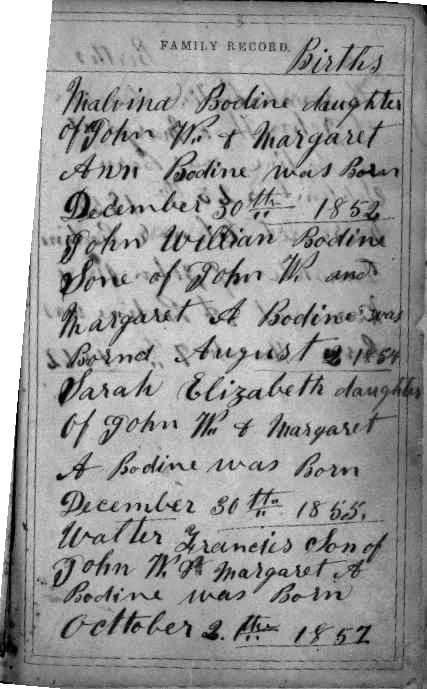 FAMILY RECORD.
Births
Malvina Bodine daughter
Of John W. & Margaret
Ann Bodine was Born
December 30th 1852
John Willian Bodine
Sone of John W. and
Margaret A Bodine was
Bornd August 2 1854
Sarah Elizabeth daughter
Of John W. & Margaret
A Bodine was Born
December 30th 1855.
Walter Francies Son of
John W. & Margaret A
Bodine was Born
Octtober 2.th 1857